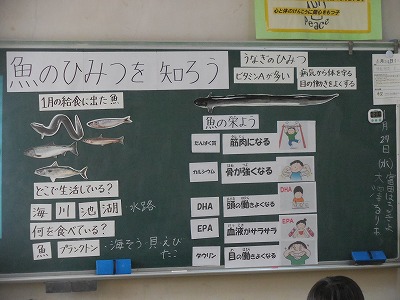 心と体のけんこうに関心をもつ子
Peace
魚のひみつを 知ろう
うなぎのひみつ
ビタミンAが多い
病気から体を守る
目の働きをよくする
1月の給食に出た魚
魚の栄よう
たんぱく質 筋肉になる
カルシウム 骨が強くなる
DHA 頭の働きよくなる DHA
EPA 血液がサラサラ EPA
タウリン 目の働きよくなる
どこで生活している?
海 川 池 湖 水路
何を食べている?
魚 プランクトン 海そう 貝 えび
たこ
月
29
日
(水)